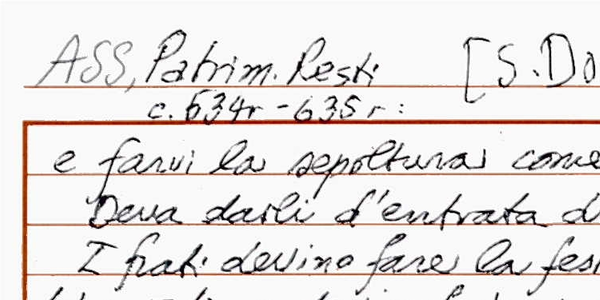 ASS, Patrim. Resti [S. Do
c. 634r - 635r:
e farvi la sepoltura come
Deva darli d'entrata d
I frati devino fare la fes